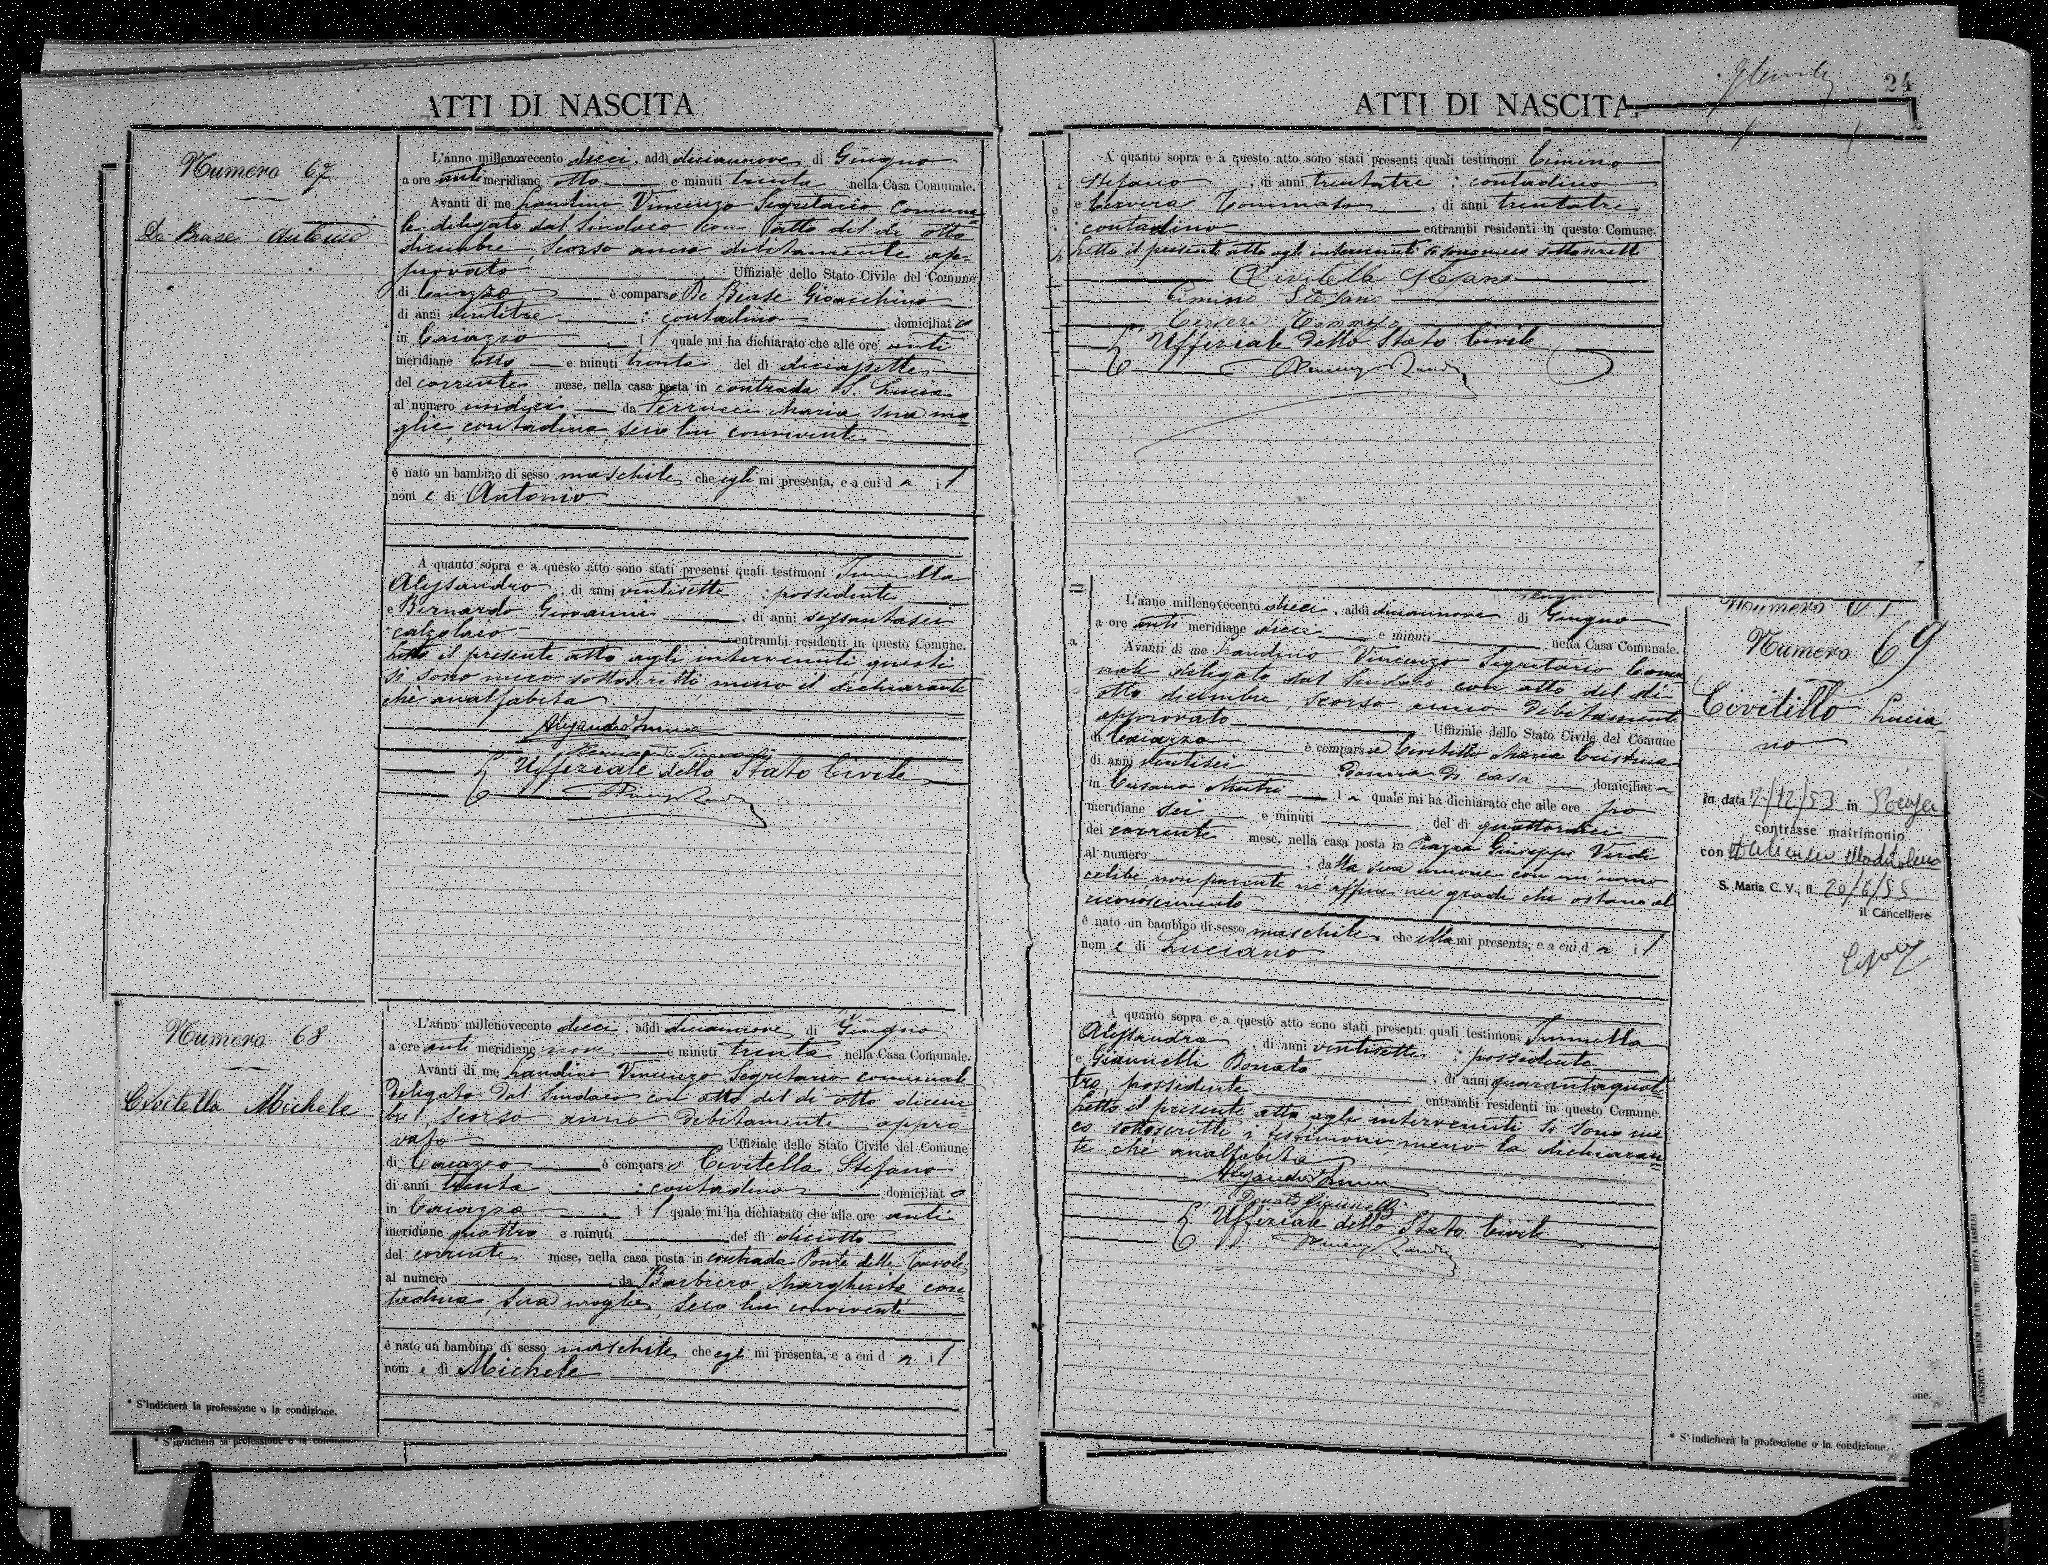 ATTI DI NASCITA
Numero 67
De Biase Antonio
L'anno millenovecento dieci, addì diciannove di Giugno
a ore anti meridiane otto e minuti trenta nella Casa Comunale.
Avanti di me Landino Vincenzo Segretario Comuna
le delegato dal Sindaco con l'atto del dì otto
dicembre, scorso anno debitamente ap-
provato Uffiziale dello Stato Civile del Comune
di Caiazzo è comparso De Biase Gioacchino
di anni ventitre : contadino domiciliato
in Caiazzo il quale mi ha dichiarato che alle ore anti
meridiane otto e minuti trenta del dì diciassette
del corrente mese, nella casa posta in contrada S. Lucia
al numero undici da Ferrucci Maria sua mo-
glie, contadina seco lui convivente
è nato un bambino di sesso maschile che egli mi presenta, e a cui dà il
nome di Antonio
A quanto sopra e a questo atto sono stati presenti quali testimoni
Alessandro, di anni ventisette : possidente
e Bernardo Giovanni, di anni sessantasei
calzolaio entrambi residenti in questo Comune.
Letto il presente atto agli intervenuti, questi
si sono meco sottoscritti, meno il dichiarante
chè analfabeta
L'Uffiziale dello Stato Civile
Numero 68
Civitella Michele
L'anno millenovecento dieci, addì diciannove di Giugno
a ore anti meridiane nove e minuti trenta nella Casa Comunale.
Avanti di me Landino Vincenzo Segretario comunale
delegato dal Sindaco con atto del dì otto dicem
bre, scorso anno debitamente appro
vato Uffiziale dello Stato Civile del Comune
di Caiazzo è comparso Civitella Stefano
di anni trenta : contadino domiciliato
in Caiazzo il quale mi ha dichiarato che alle ore anti
meridiane quattro e minuti del dì diciotto
del corrente mese, nella casa posta in contrada Ponte delle Tavole
al numero da Barbiero Margherita con-
tadina, sua moglie, seco lui convivente
è nato un bambino di sesso maschile che egli mi presenta, e a cui dà il
nome di Michele
* S'indicherà la professione o la condizione.
ATTI DI NASCITA.
24
A quanto sopra e a questo atto sono stati presenti quali testimoni Cimino
Stefano, di anni trentatre : contadino
e Cervera Tommaso, di anni trentatre
contadino entrambi residenti in questo Comune.
Letto il presente atto agli intervenuti si sono meco sottoscritti
Civitella Stefano
Cimino Stefano
Cervera Tommaso
L'Uffiziale dello Stato Civile
Numero 69
Civitillo Luciano
in data in
contrasse matrimonio
con
S. Maria C. V., il 20/6/55
il Cancelliere
L'anno millenovecento dieci, addì diciannove di Giugno
a ore anti meridiane dieci e minuti nella Casa Comunale.
Avanti di me Landino Vincenzo Segretario Comu
nale delegato dal Sindaco con atto del dì
otto dicembre, scorso anno debitamente
approvato Uffiziale dello Stato Civile del Comune
di Caiazzo è comparsa Civitillo Maria Cristina
di anni ventisei donna di casa domiciliata
in Cusano Mutri la quale mi ha dichiarato che alle ore po
meridiane sei e minuti del dì quattordici
del corrente mese, nella casa posta in Piazza Giuseppe Verdi
al numero dalla sua unione con un uomo
celibe, non parente nè affine nei gradi che ostano al
riconoscimento
è nato un bambino di sesso maschile che ella mi presenta, e a cui dà il
nome di Luciano
A quanto sopra e a questo atto sono stati presenti quali testimoni
Alessandro, di anni ventisette : possidente
e Giannelli Donato, di anni quarantaquat-
tro possidente entrambi residenti in questo Comune.
Letto il presente atto agli intervenuti si sono me
co sottoscritti i testimoni meno la dichiaran-
te chè analfabeta
Donato Giannelli
L'Uffiziale dello Stato Civile
* S'indicherà la professione o la condizione.